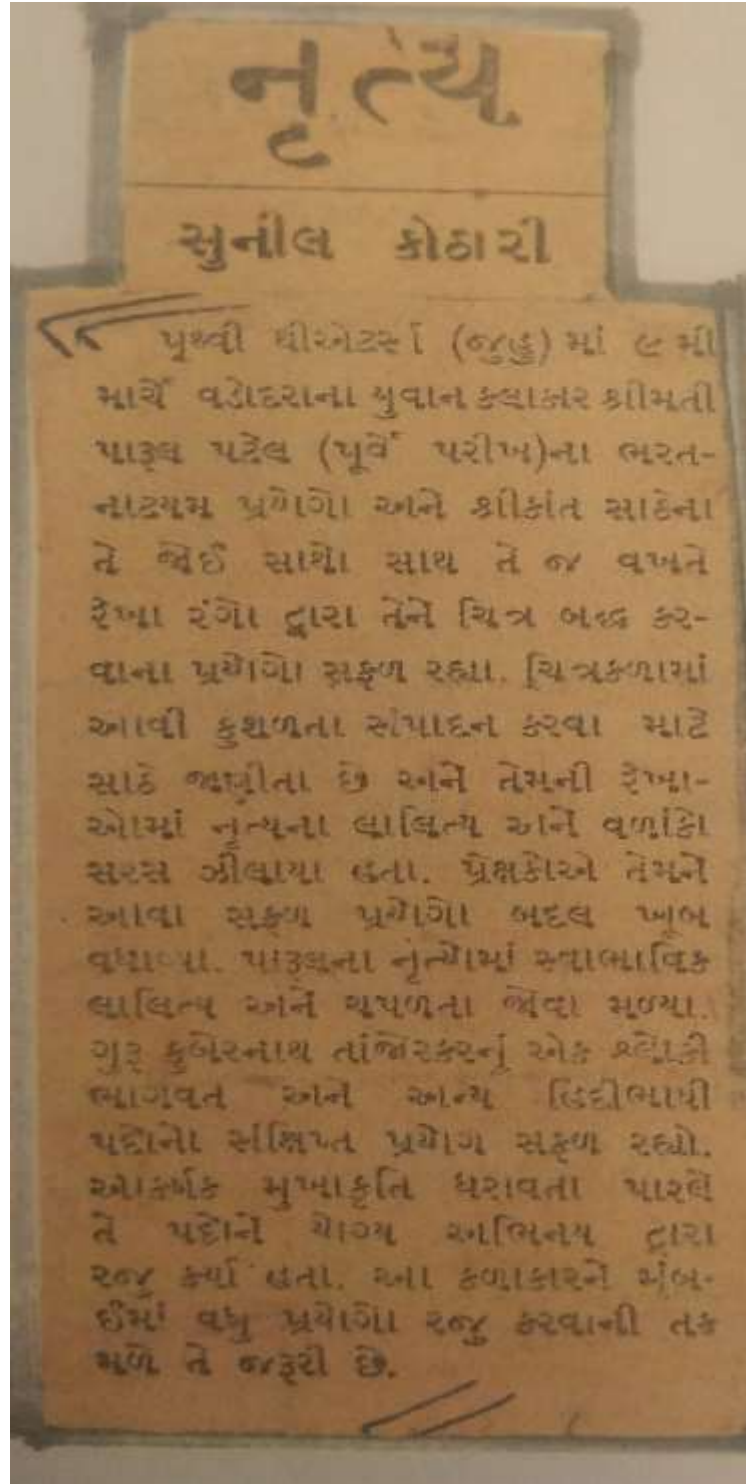 નૃત્ય
સુનીલ કોઠારી
પૃથ્વી થીએટર્સ (જુહુ) માં ૯ મી
માર્ચે વડોદરાના યુવાન કલાકાર શ્રીમતી
પારૂલ પટેલ (પૂર્વે પરીખ)ના ભરત-
નાટયમ પ્રયોગો અને શ્રીકાંત સાઠેના
તે જોઈ સાથો સાથ તે જ વખતે
રેખા રંગો દ્વારા તેને ચિત્ર બદ્ધ કર-
વાના પ્રયોગો સફળ રહ્યા. ચિત્રકળામાં
આવી કુશળતા સંપાદન કરવા માટે
સાઠે જાણીતા છે અને તેમની રેખા-
ઓમાં નૃત્યના લાલિત્ય અને વળાંકો
સરસ ઝીલાયા હતા. પ્રેક્ષકોએ તેમને
આવા સફળ પ્રયોગો બદલ ખૂબ
વધાવ્યા. પારૂલના નૃત્યોમાં સ્વાભાવિક
લાલિત્ય અને ચપળતા જોવા મળ્યા.
ગુરૂ કુબેરનાથ તાંજોરકરનું એક શ્લોકી
ભાગવત અને અન્ય હિંદીભાષી
પદોનો સંક્ષિપ્ત પ્રયોગ સફળ રહ્યો.
આકર્ષક મુખાકૃતિ ધરાવતા પારલે
તે પદોને યોગ્ય અભિનય દ્વારા
રજુ કર્યા હતા. આ કળાકારને મુંબ-
ઈમાં વધુ પ્રયોગો રજુ કરવાની તક
મળે તે જરૂરી છે.